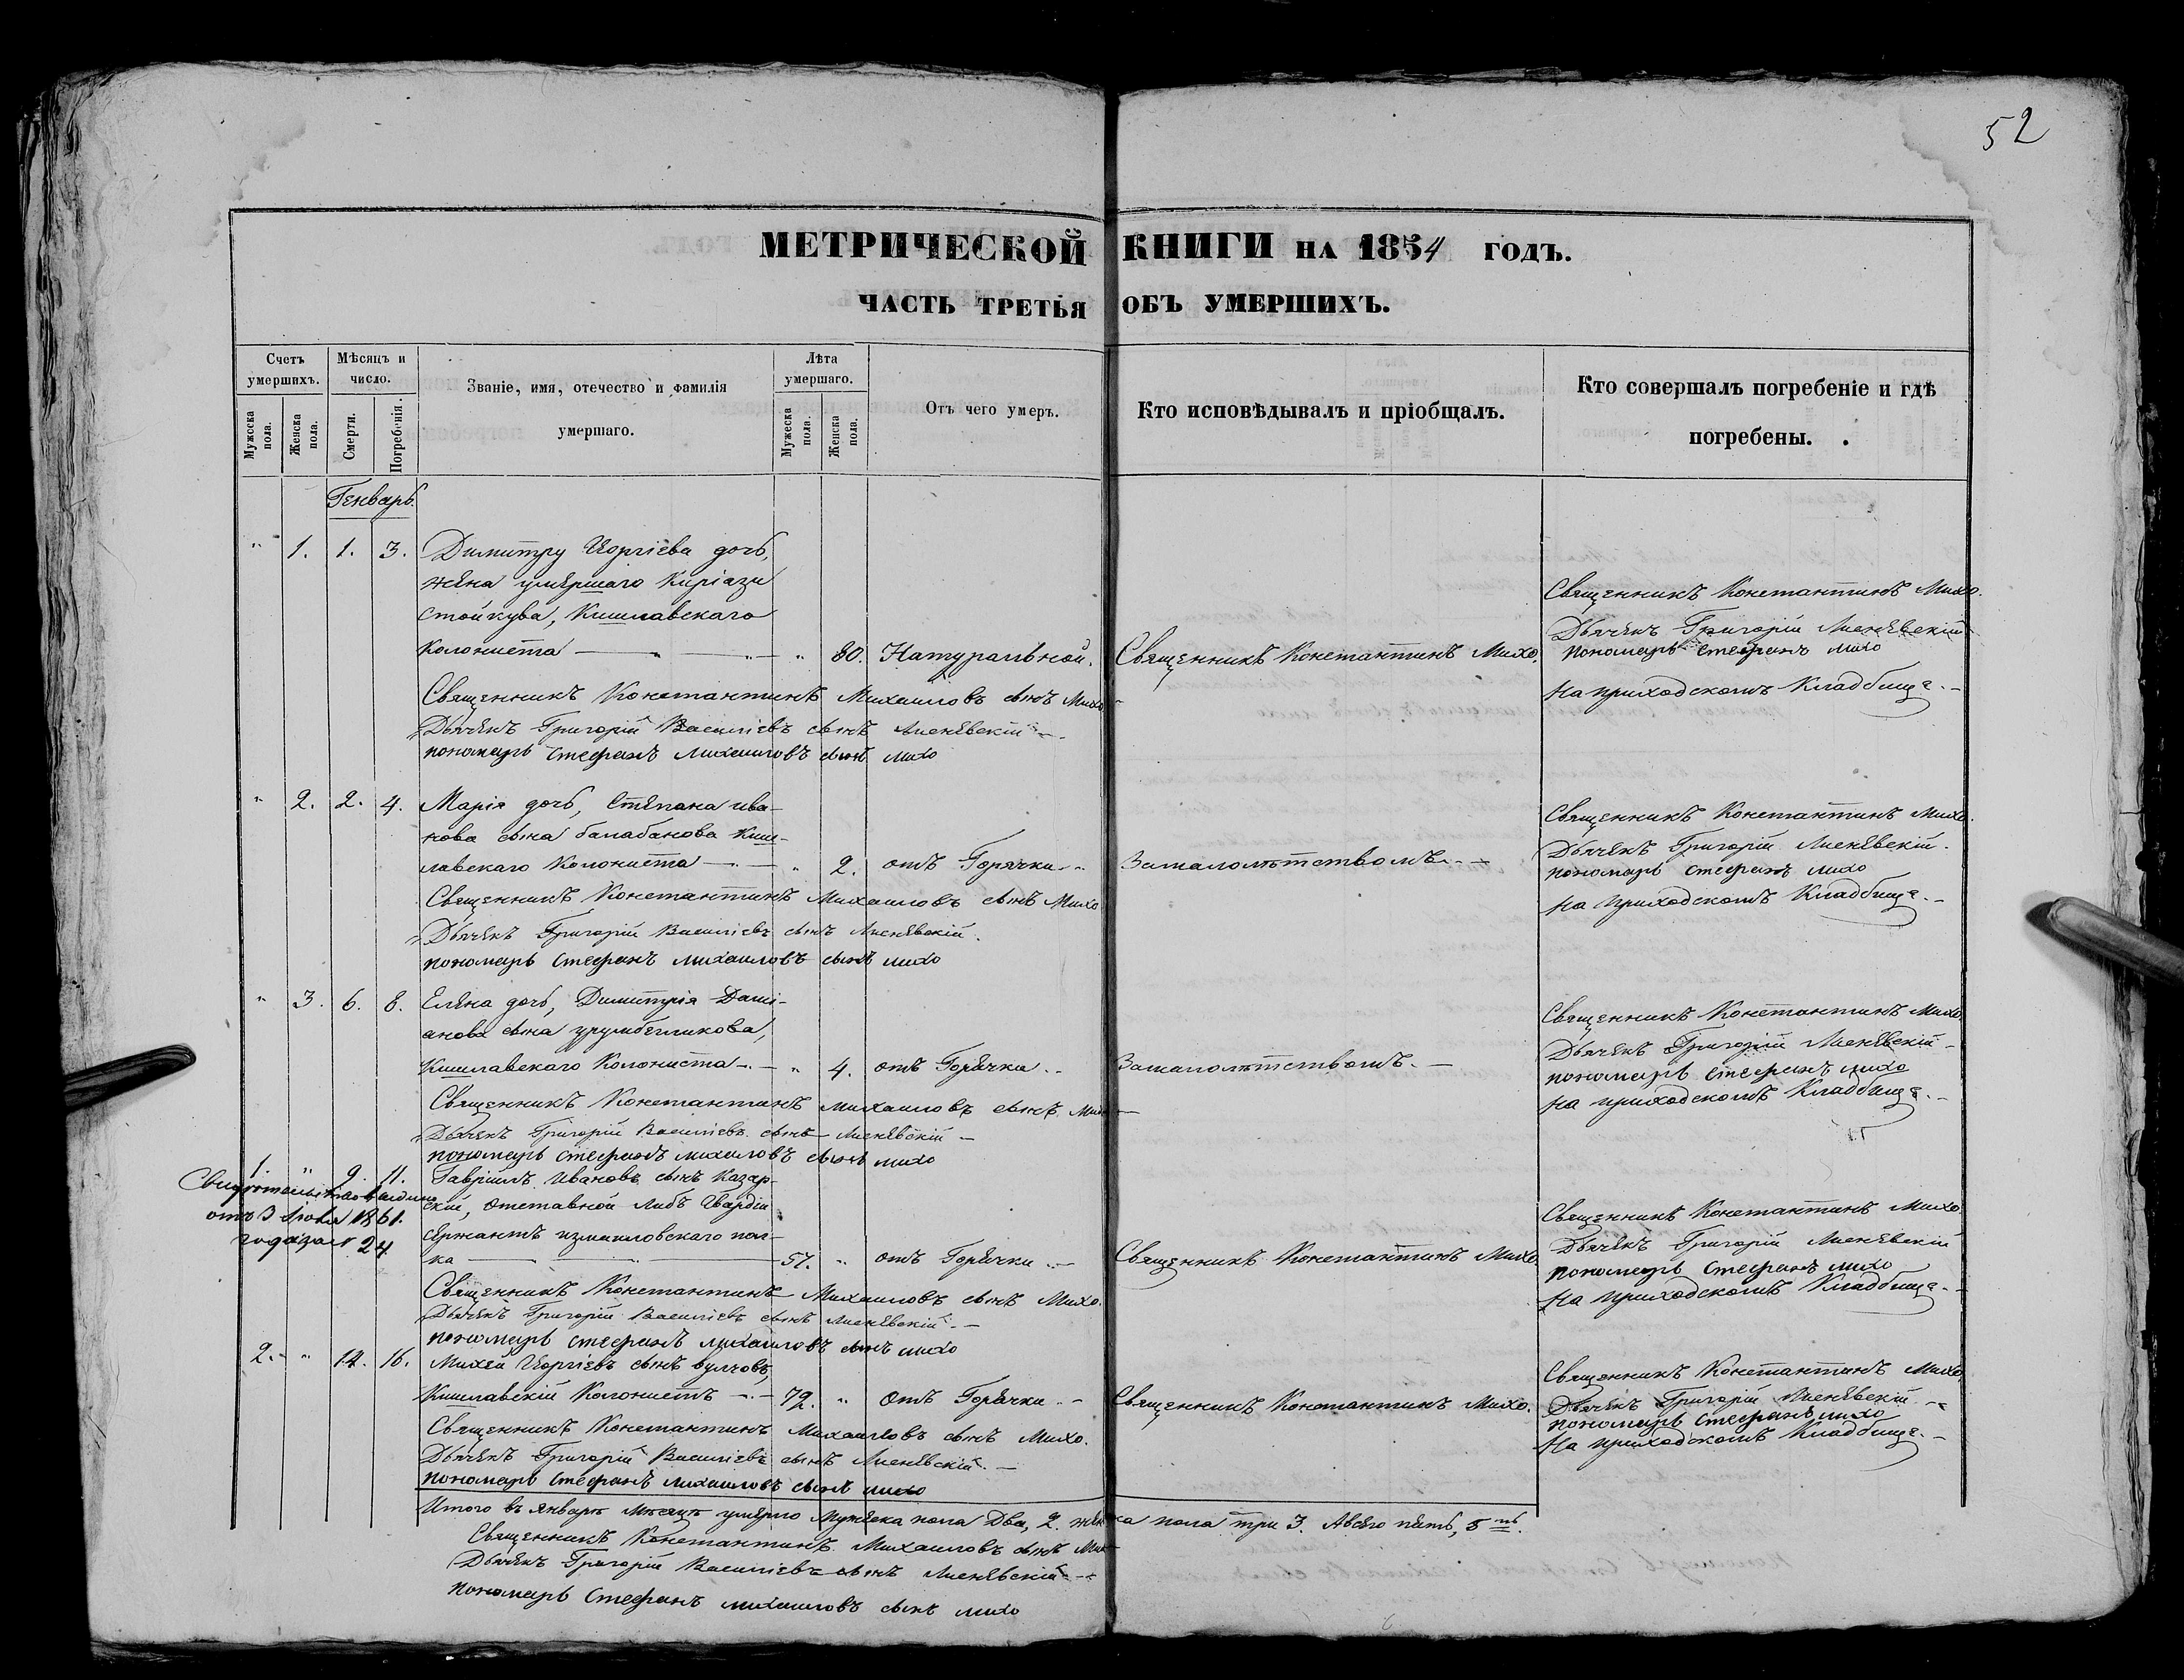 52
МЕТРИЧЕСКОЙ КНИГИ НА 1854 ГОДЪ.
ЧАСТЬ ТРЕТЬЯ ОБЪ УМЕРШИХЪ.
Счетъ умершихъ.
Мужеска пола.
Женска пола.
Мѣсяцъ и число.
Смерти.
Погребенія.
Званіе, имя, отечество и фамилія умершаго.
Лѣта умершаго.
Мужеска пола.
Женска пола.
Отъ чего умеръ.
Кто исповѣдывалъ и пріобщалъ.
Кто совершалъ погребеніе и гдѣ погребены.
Генварь.
" 1. 1. 3. Димитру Георгіева дочь,
жена умершаго Киріази
Стойкува, Кишлавскаго
Колониста — " 80. Натуральной. Священникъ Константинъ Михо.
Священникъ Константинъ Михо.
Дьячекъ Григорій Лисневскій
пономарь Стефанъ михо
на приходскомъ Кладбище.
Священникъ Константинъ Михаиловъ сынъ Михо
Дьячекъ Григорій Василіевъ сынъ Лисневскій
пономарь Стефанъ михаиловъ сынъ михо
" 2. 2. 4. Марія дочь, Степана ива-
нова сына балабанова Киш-
лавскаго Колониста — " 2. отъ Горячки Замалолѣтствомъ
Священникъ Константинъ Михо.
Дьячекъ Григорій Лисневскій.
пономарь стефанъ михо
на приходскомъ Кладбище.
Священникъ Константинъ Михаиловъ сынъ Михо.
Дьячекъ Григорій Василіевъ сынъ Лисневскій.
пономарь стефанъ михаиловъ сынъ михо
" 3. 6. 8. Елена дочь, Димитрія Дами-
анова сына урумбегликова,
Кишлавскаго Колониста — " 4. отъ Горячки Замалолѣтствомъ.
Священникъ Константинъ Михо.
Дьячекъ Григорій Лисневскій
пономарь стефанъ михо
на приходскомъ Кладбище.
Священникъ Константинъ михаиловъ сынъ Михо
Дьячекъ Григорій Василіевъ сынъ Лисневскій
пономарь стефанъ михаиловъ сынъ михо
1. " 9. 11. Гавріилъ Ивановъ сынъ Казар-
скій, отставной Либъ Гвардіи
сержантъ измаиловскаго пол-
ка — 57. " отъ Горячки Священникъ Константинъ Михо.
отъ 3 1861.
года за № 24
Священникъ Константинъ Михо.
Дьячекъ Григорій Лисневскій
пономарь стефанъ михо
на приходскомъ Кладбище.
Священникъ Константинъ Михаиловъ сынъ Михо.
Дьячекъ Григорій Василіевъ сынъ Лисневскій
пономарь стефанъ михаиловъ сынъ михо
2. " 14. 16. Михей Георгіевъ сынъ вулчовъ,
Кишлавскій Колонистъ — 72. " отъ Горячки Священникъ Константинъ Михо.
Священникъ Константинъ Михо.
Дьячекъ Григорій Лисневскій
пономарь стефанъ михо
на приходскомъ Кладбище.
Священникъ Константинъ Михаиловъ сынъ Михо.
Дьячекъ Григорій Василіевъ сынъ Лисневскій
пономарь стефанъ михаиловъ сынъ михо
Итого въ январѣ мѣсяцѣ умерло Мужеска пола Два, 2. женска пола три 3. Авсего пять, 5 ть.
Священникъ Константинъ Михаиловъ сынъ Михо
Дьячекъ Григорій Василіевъ сынъ Лисневскій
пономарь Стефанъ михаиловъ сынъ михо